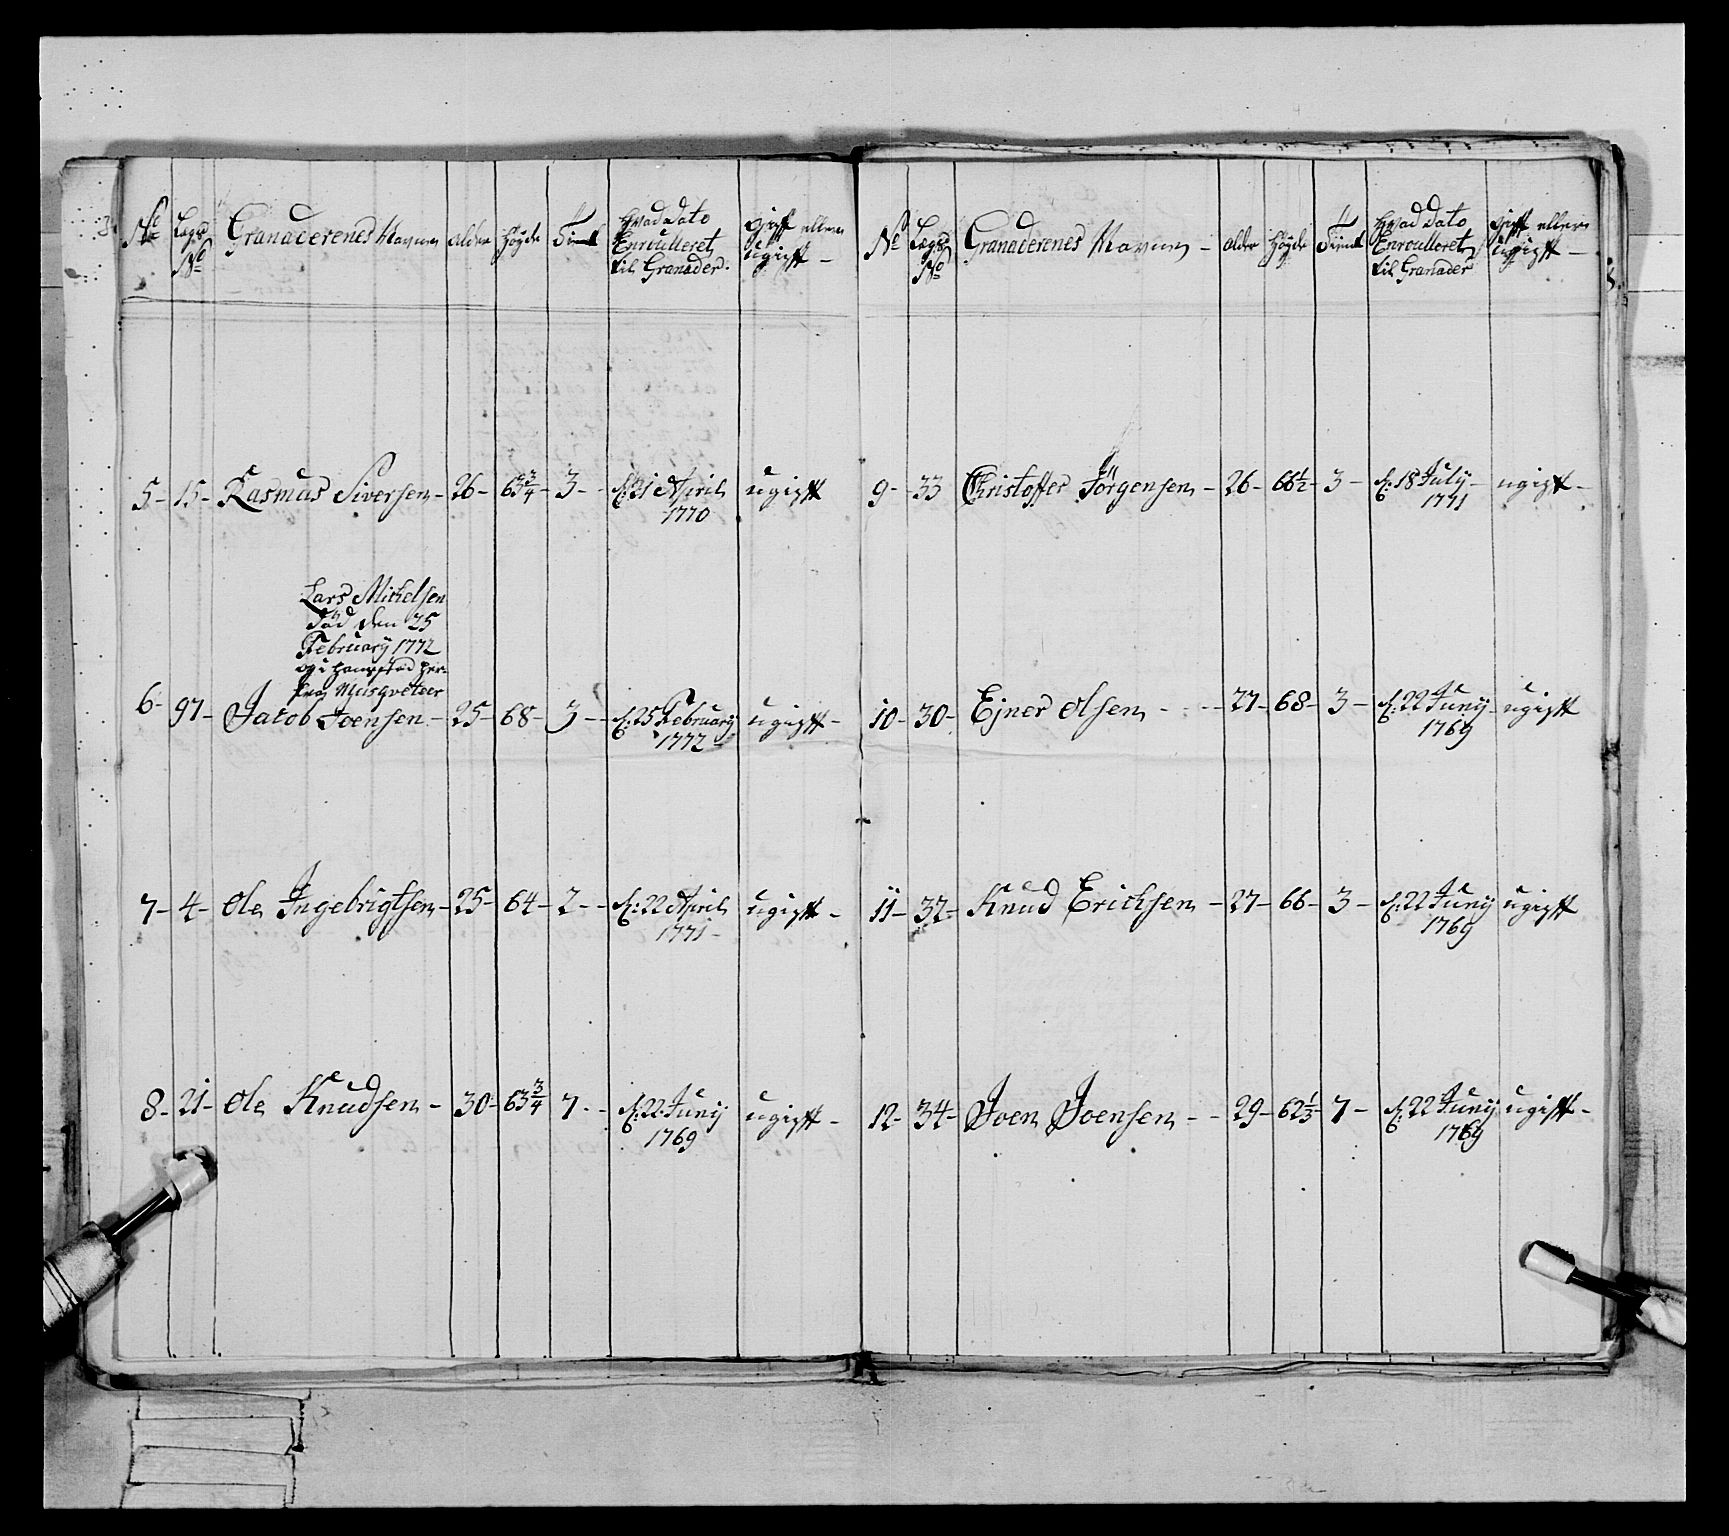 No Lægs No Granaderenes Navne alder Høyde Tient Hvad Dato Enroulleret til Granader. Gift eller ugift -
5 - 15 - Rasmus Siversen - 26 - 63 3/4 - 3 - d: 21 April 1770 ugift
Lars Michelsen
Död den 25
February 1772
og i hans sted
fra Musqveteer
6 - 97 - Jacob Joensen - 25 - 68 - 3 - d: 25 February 1772 ugift -
7 - 4 - Ole Ingebrigtsen - 25 - 64 - 2 - d: 22 April 1771 - ugift -
8 - 21 - Ole Knudsen - 30 - 63 3/4 - 7 - d: 22 Juny 1769 ugift -
No Lægs No Granaderenes Navne - alder Høyde Tient Hvad Dato Enroulleret til Granader Gift eller ugift -
9 - 33 Christoffer Jörgensen - 26 - 66 1/2 - 3 - d: 18 July 1771 ugift -
10 - 30 - Ejner Olsen - 27 - 68 - 3 - d: 22 Juny 1769 ugift
11 - 32 - Knud Erichsen - 27 - 66 - 3 - d: 22 Juny 1769 ugift
12 - 34 - Joen Joensen - 29 - 62 1/3 - 7 - d: 22 Juny 1769 ugift -